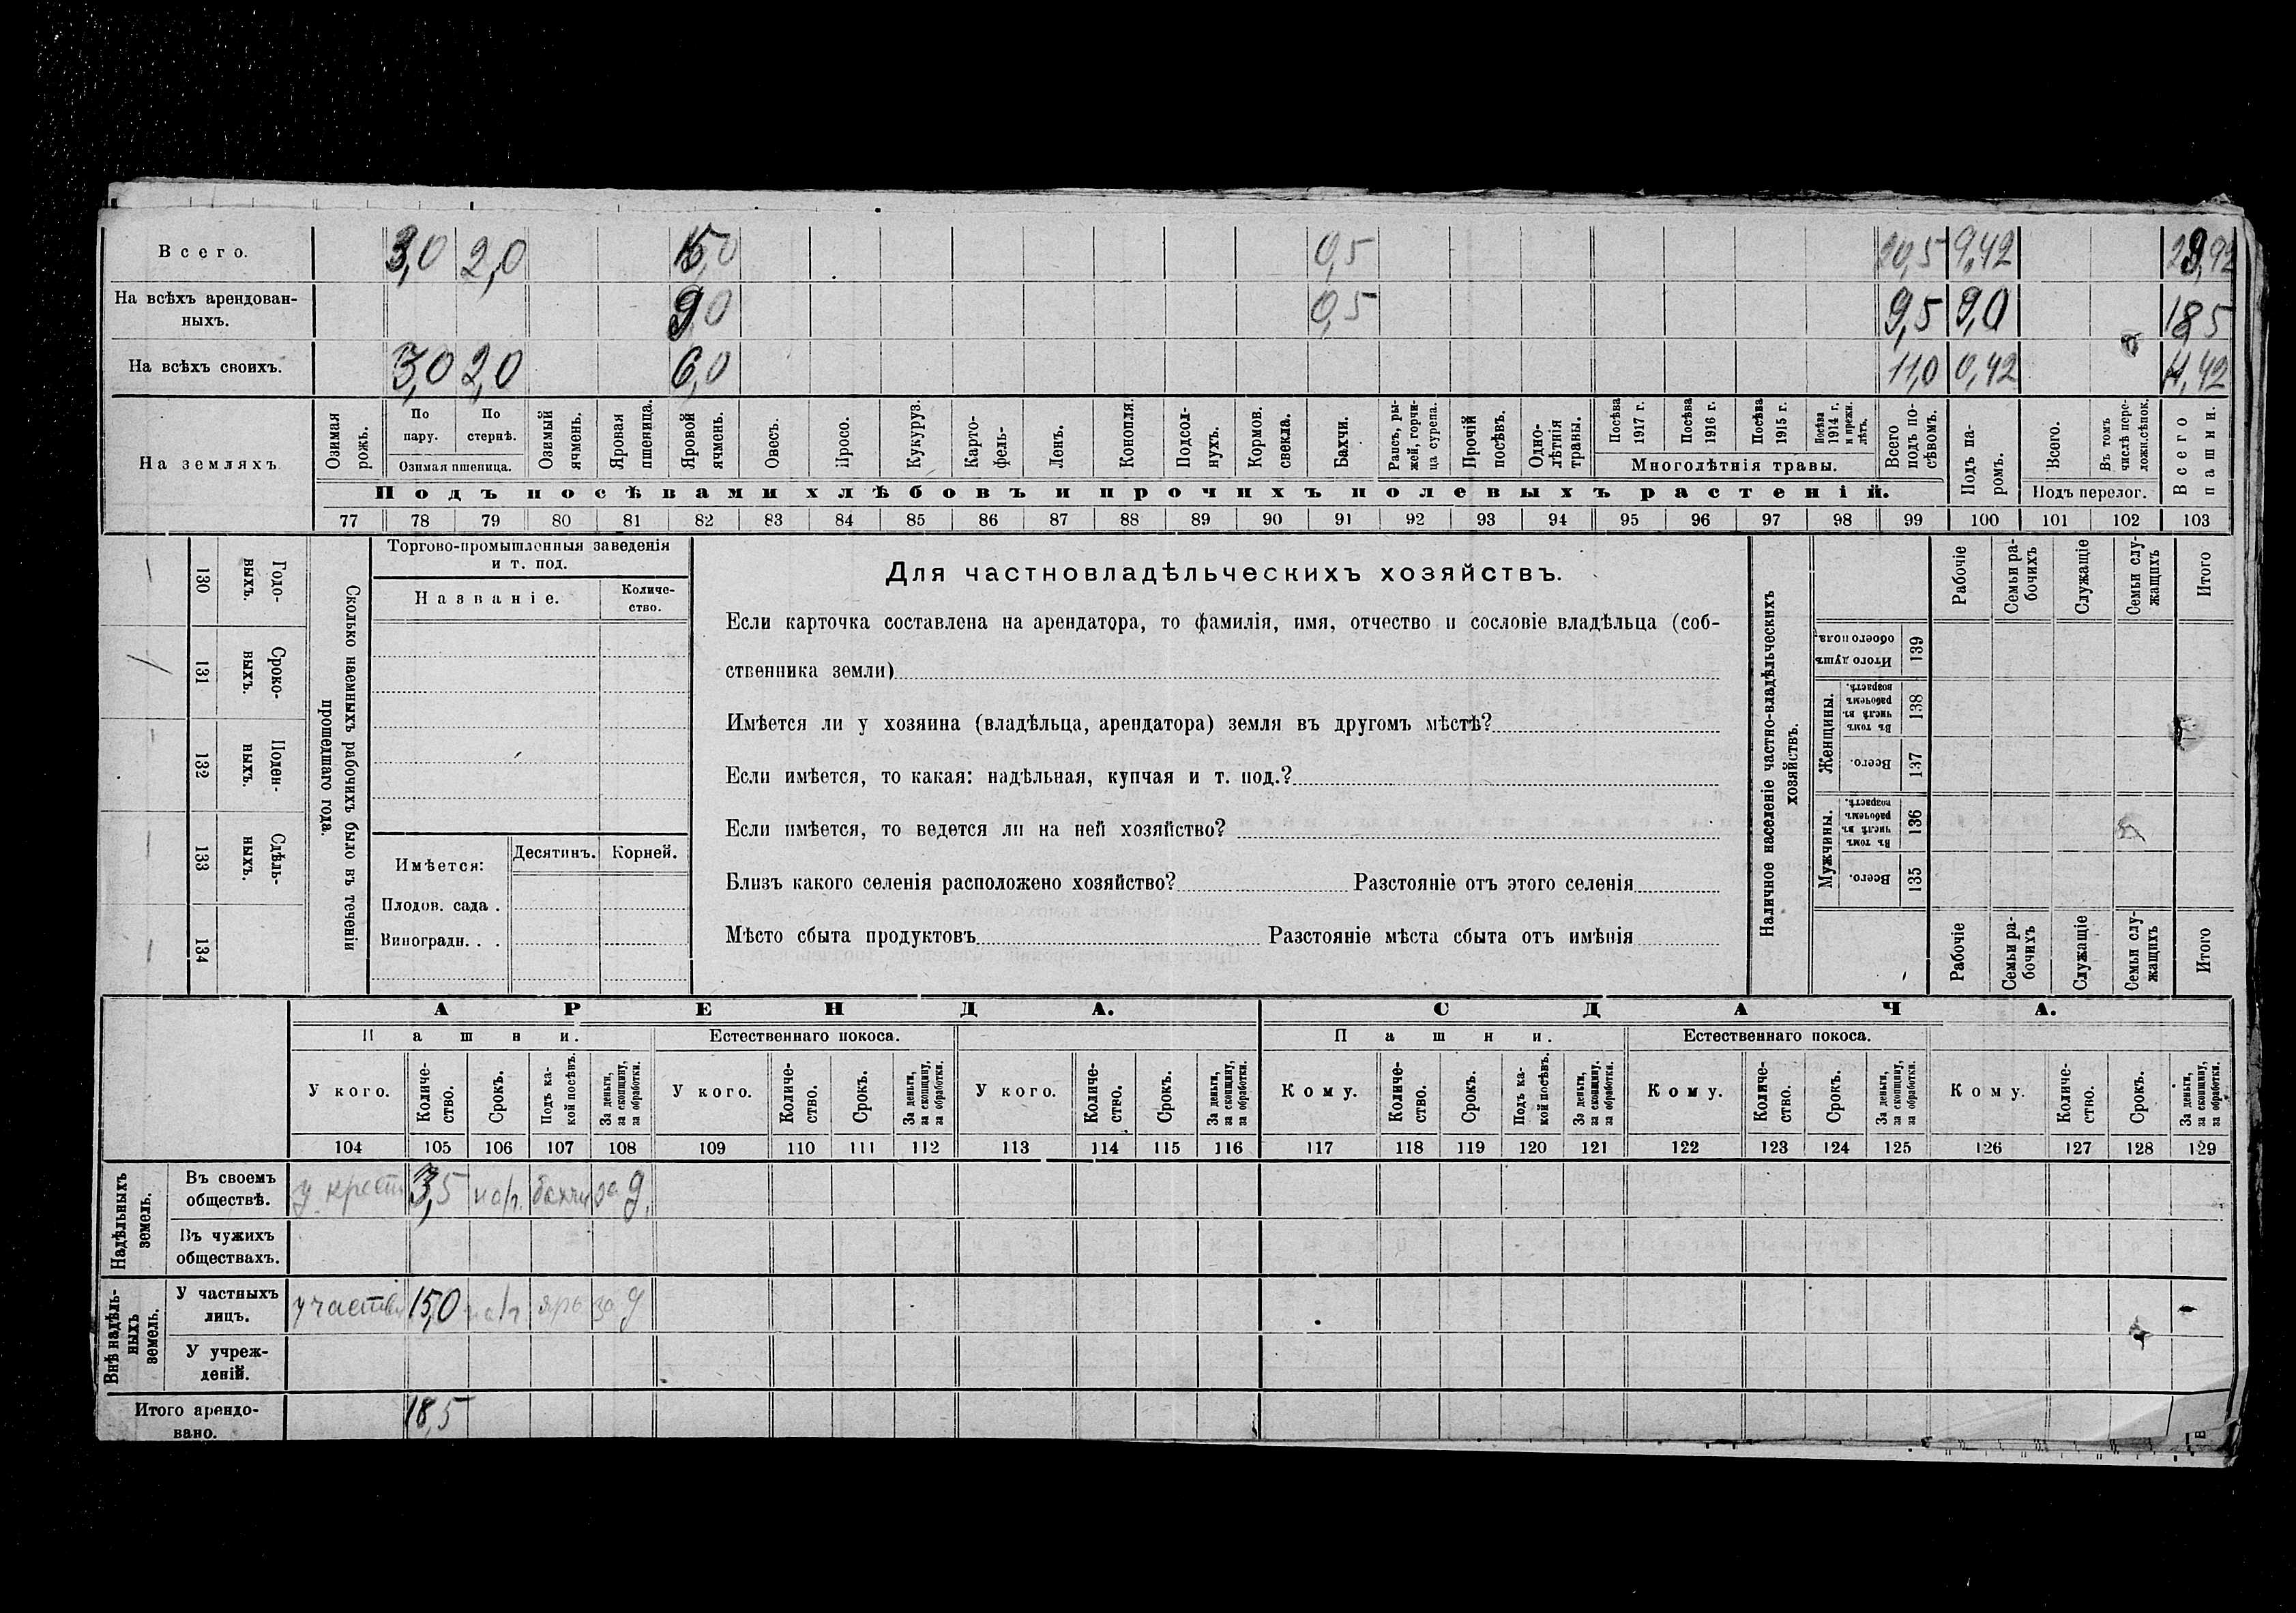 Всего. 3,0 2,0 15,0 0,5 20,5 9,42 29,92
На всѣхъ арендован-
ныхъ. 9,0 0,5 9,5 9,0 18,5
На всѣхъ своихъ. 3,0 2,0 6,0 11,0 0,42 11,42
На земляхъ
Озимая рожь.
По пару.
По стернѣ.
Озимая пшеница.
Озимый ячмень.
Яровая пшеница.
Яровой ячмень.
Овесъ.
Просо.
Кукуруз.
Карто-
фель-
Ленъ.
Конопля.
Подсол-
нухъ.
Кормов. свекла.
Бахчи.
Рапсъ, ры-
жей, горчи-
ца сурепа.
Прочій посѣвъ.
Одно-
лѣтнія
травы.
Посѣва 1917 г.
Посѣва 1916 г.
Посѣва 1915 г.
Посѣва 1914 г. и прежн. лѣтъ.
Многолѣтнія травы.
Всего подъ по-
сѣвомъ.
Подъ па-
ромъ.
Всего.
Въ томъ числѣ пере-
ложн.сѣнок.
Подъ перелог.
Всего пашни.
Подъ посѣвами хлѣбовъ и прочихъ полевыхъ растеній.
77 78 79 80 81 82 83 84 85 86 87 88 89 90 91 92 93 94 95 96 97 98 99 100 101 102 103
130 Годо-
выхъ.
131 Сроко-
выхъ.
132 Поден-
ныхъ.
133 Сдѣль-
ныхъ.
134
Сколько наемныхъ рабочихъ было въ теченіи
прошедшаго года.
Торгово-промышленныя заведенія
и т. под.
Названіе.
Количе-
ство.
Имѣется: Десятинъ. Корней.
Плодов. сада .
Виноградн. . .
Для частновладѣльческихъ хозяйствъ.
Если карточка составлена на арендатора, то фамилія, имя, отчество и сословіе владѣльца (соб-
ственника земли)
Имѣется ли у хозяина (владѣльца, арендатора) земля въ другомъ мѣстѣ?
Если имѣется, то какая: надѣльная, купчая и т. под.?
Если имѣется, то ведется ли на ней хозяйство?
Близъ какого селенія расположено хозяйство? Разстояніе отъ этого селенія
Мѣсто сбыта продуктовъ Разстояніе мѣста сбыта отъ имѣнія
Наличное населеніе частно-владѣльческихъ
хозяйствъ.
Рабочіе
Семьи ра-
бочихъ
Служащіе
Семьи слу-
жащихъ
Итого
Итого душъ обоего пола. 139
Женщины.
Въ томъ числѣ въ рабочемъ возрастѣ. 138
Всего. 137
Мужчины.
Въ томъ числѣ въ рабочемъ возрастѣ. 136
Всего. 135
Рабочіе
Семьи ра-
бочихъ
Служащіе
Семьи слу-
жащихъ
Итого
АРЕНДА. СДАЧА.
Пашни. Естественнаго покоса. Пашни. Естественнаго покоса.
У кого. Количе-
ство. Срокъ. Подъ ка-
кой посѣвъ. За деньги, за скопщину, за обработки.
У кого. Количе-
ство. Срокъ. За деньги, за скопщину, за обработки.
У кого. Количе-
ство. Срокъ. За деньги, за скопщину, за обработки.
Кому. Количе-
ство. Срокъ. Подъ ка-
кой посѣвъ. За деньги, за скопщину, за обработки.
Кому. Количе-
ство. Срокъ. За деньги, за скопщину, за обработки.
Кому. Количе-
ство. Срокъ. За деньги, за скопщину, за обработки.
104 105 106 107 108 109 110 111 112 113 114 115 116 117 118 119 120 121 122 123 124 125 126 127 128 129
Надѣльныхъ
земель.
Въ своемъ
обществѣ. у крест 3,5 бахчи за д.
Въ чужихъ
обществахъ.
Внѣ надѣль-
ныхъ
земель.
У частныхъ
лицъ. 15,0 за д
У учреж-
деній.
Итого арендо-
вано. 18,5